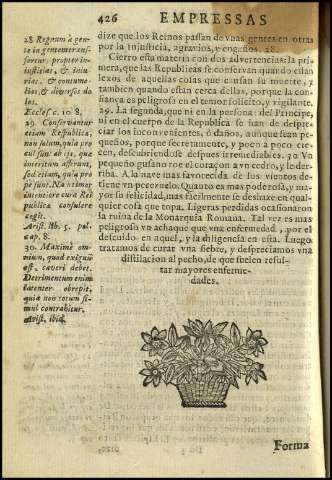 426 EMPRESSAS
28 Regnum a gen-
te in gentem trans-
fertur, propter in-
iustitias, & iniu-
rias, & contume-
lias, & diversos do
los.
Eccles c. 10 8.
29. Conservantur
etiam Respublica,
non solum, quia pro
cul sunt ab ijs, quæ
interitum afferunt,
sed etiam, quia pro
pe sunt. Na timor
intentiore cura Rei
publica consulere
cogit.
Arist. lib. 5. pol.
cap. 8.
30. Maxime om-
nium, quod exiguũ
est, caveri debet.
Detrimentum enim
latenter obrepit,
quia non totum si-
mul contrahitur.
Arist. ibid.
dize que los Reinos passan de vnas gentes en otras
por la injusticia, agravios, y engaños. 28.
Cierro esta materia con dos advertencias: la pri-
mera, que las Republicas se conservan quando estan
lexos de aquellas cosas que causan la muerte, y
tambien quando estan cerca dellas, porque la con-
fiança es peligrosa en el temor solicito, y vigilante.
29. La segunda, que ni en la persona del Principe,
ni en el cuerpo de la Republica se han de despre-
ciar los inconvenientes, ò daños, aunque sean pe-
queños, porque secretamente, y poco a poco cre-
cen, descubriendose despues irremediables. 30 Vn
pequeño gusano roe el coraçon a vn cedro, y le der-
riba. A la nave mas favorecida de los vientos de-
tiene vn pecezuelo. Quanto es mas poderosa, y ma-
yor su felicidad, mas facilmente se deshaze en qual-
quier cosa que topa. Ligeras perdidas ocasionaron
la ruina de la Monarquia Romana. Tal vez es mas
peligroso vn achaque que vna enfermedad, por el
descuido en aquel, y la diligencia en esta. Luego
tratamos de curar vna febre, y despreciamos vna
distilacion al pecho, de que suelen resul-
tar mayores enferme-
dades.
Forma